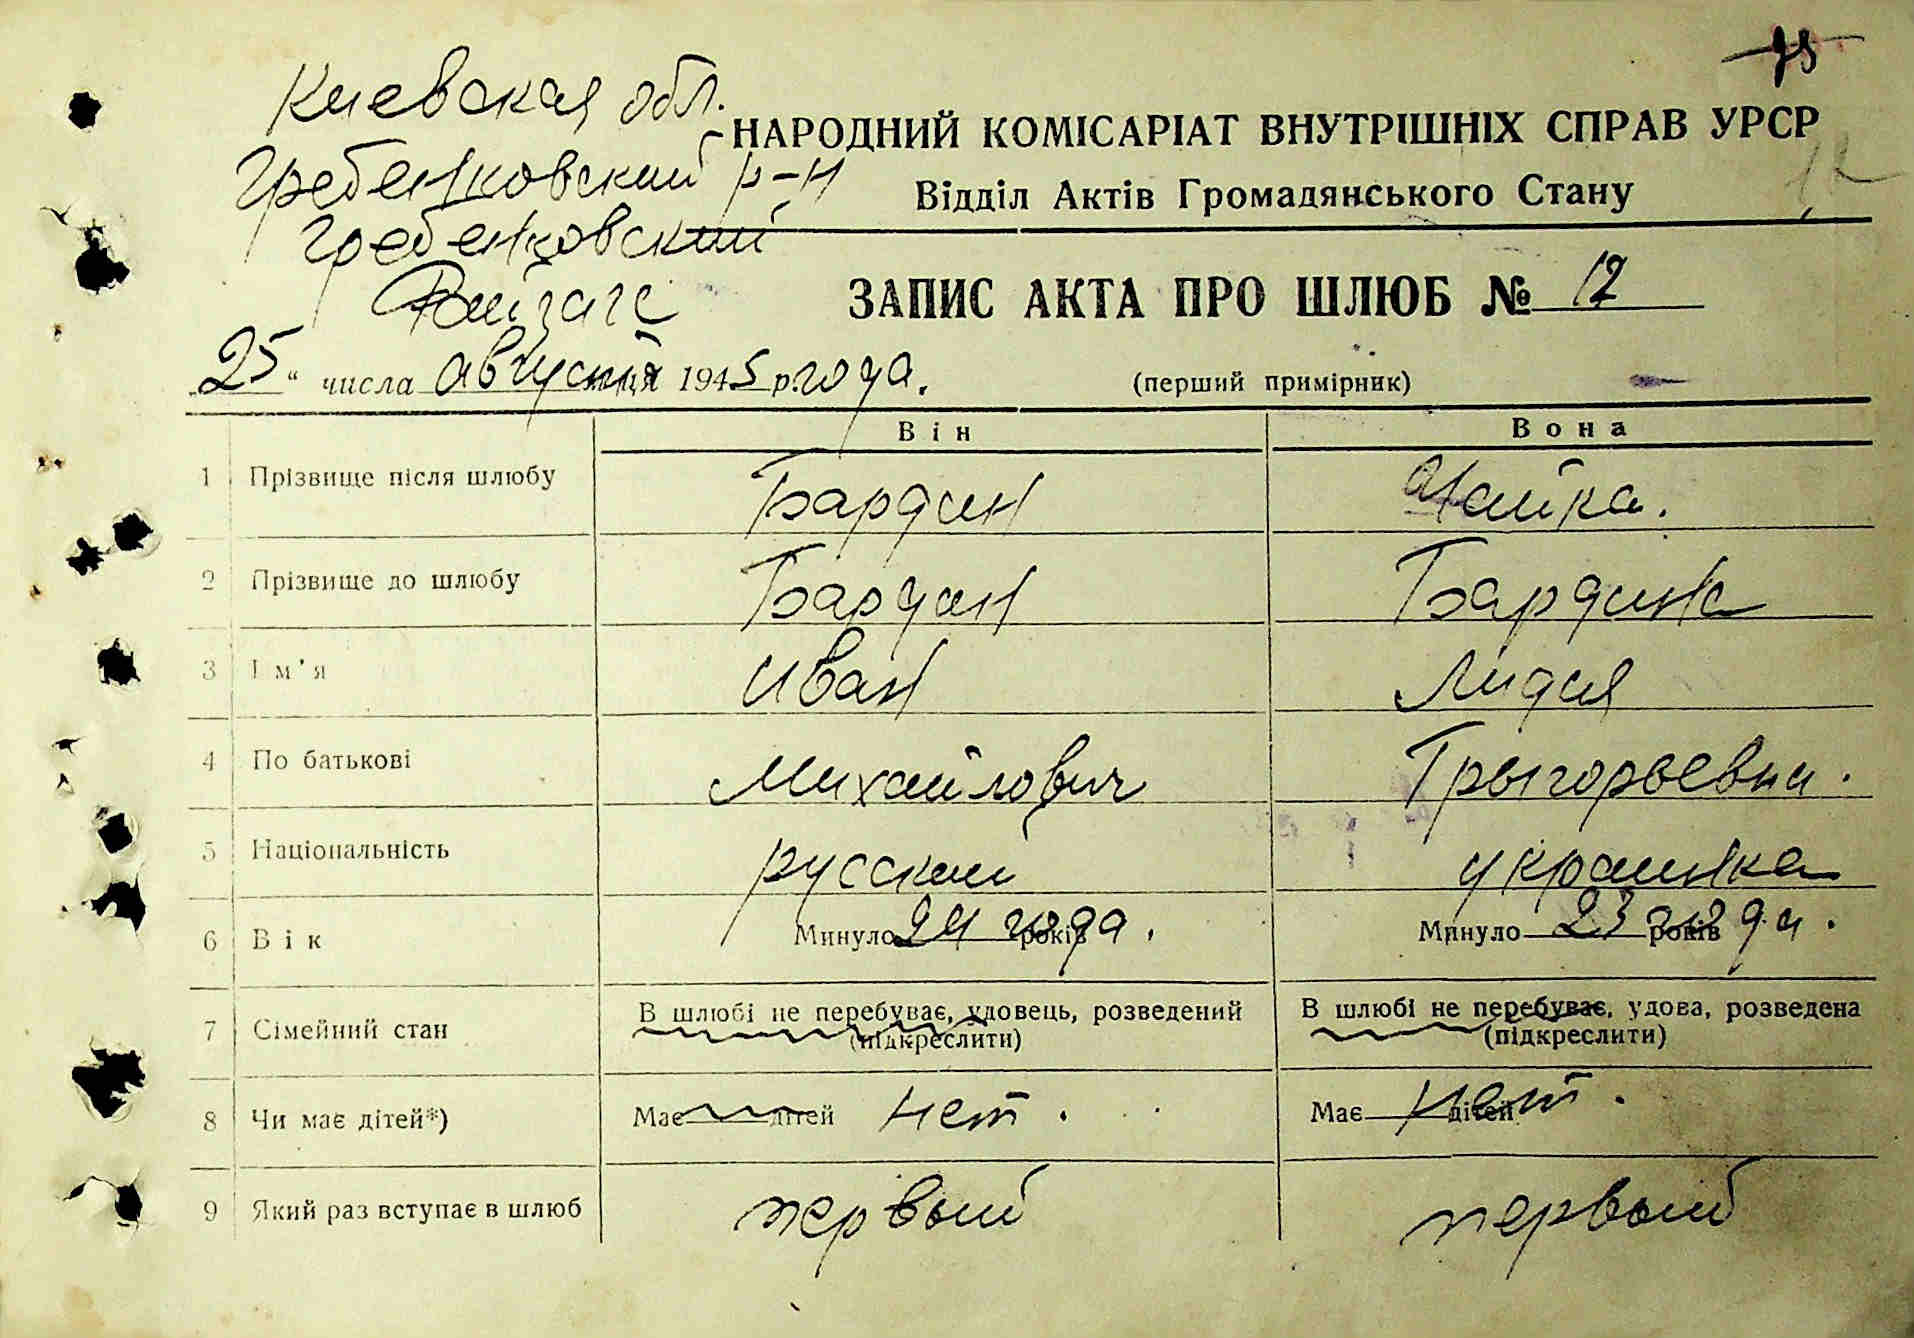 75
Киевская обл.
НАРОДНИЙ КОМІСАРІАТ ВНУТРІШНІХ СПРАВ УРСР
Гребенковский р-н
Відділ Актів Громадянського Стану
Гребенковский
Райзагс
ЗАПИС АКТА ПРО ШЛЮБ № 12
25 " числа августа 1945 р. года.
(перший примірник)
Він Вона
1 Прізвище після шлюбу Бардин Чайка.
2 Прізвище до шлюбу Бардин Бардина
3 Ім'я Иван Лидия
4 По батькові Михайлович Грыгорьевна.
5 Національність русский украинка
6 Вік Минуло 24 років года. Минуло 23 років года.
7 Сімейний стан В шлюбі не перебуває, удовець, розведений В шлюбі не перебуває, удова, розведена
(підкреслити) (підкреслити)
8 Чи має дітей*) Має дітей нет. Має дітей нет.
9 Який раз вступає в шлюб первый первый